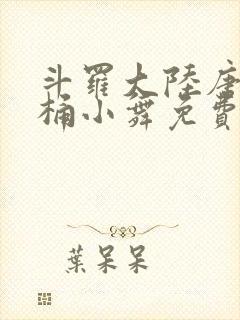 斗羅大陸唐
桶小舞免費
葉呆呆